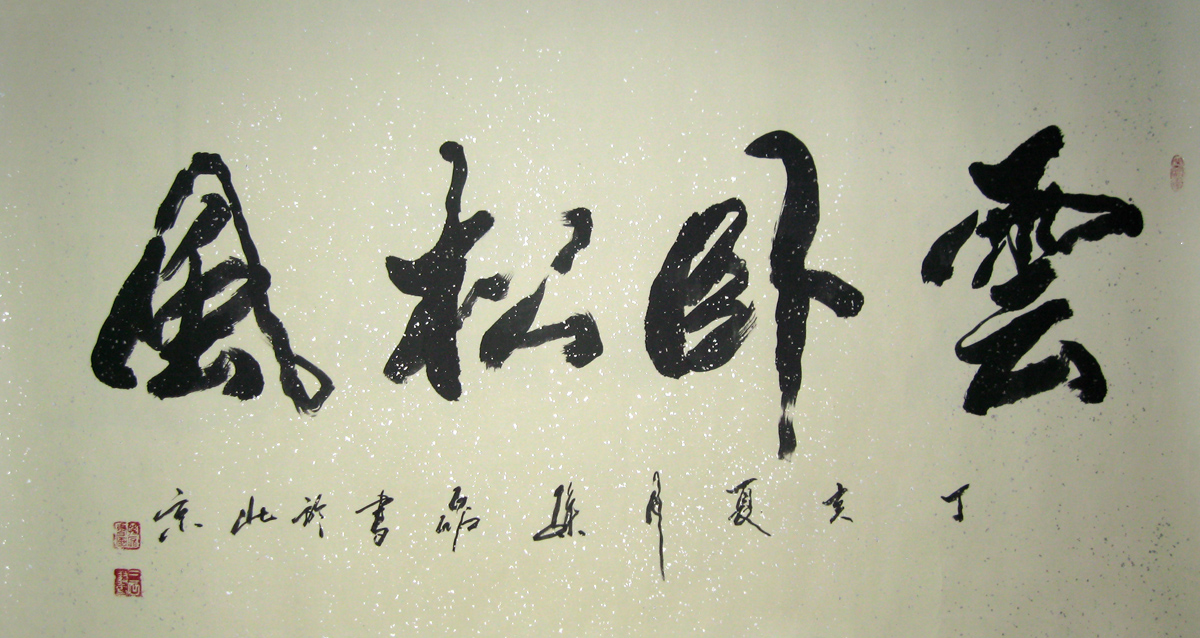 雲卧松風
丁亥夏月孫磊書於北京